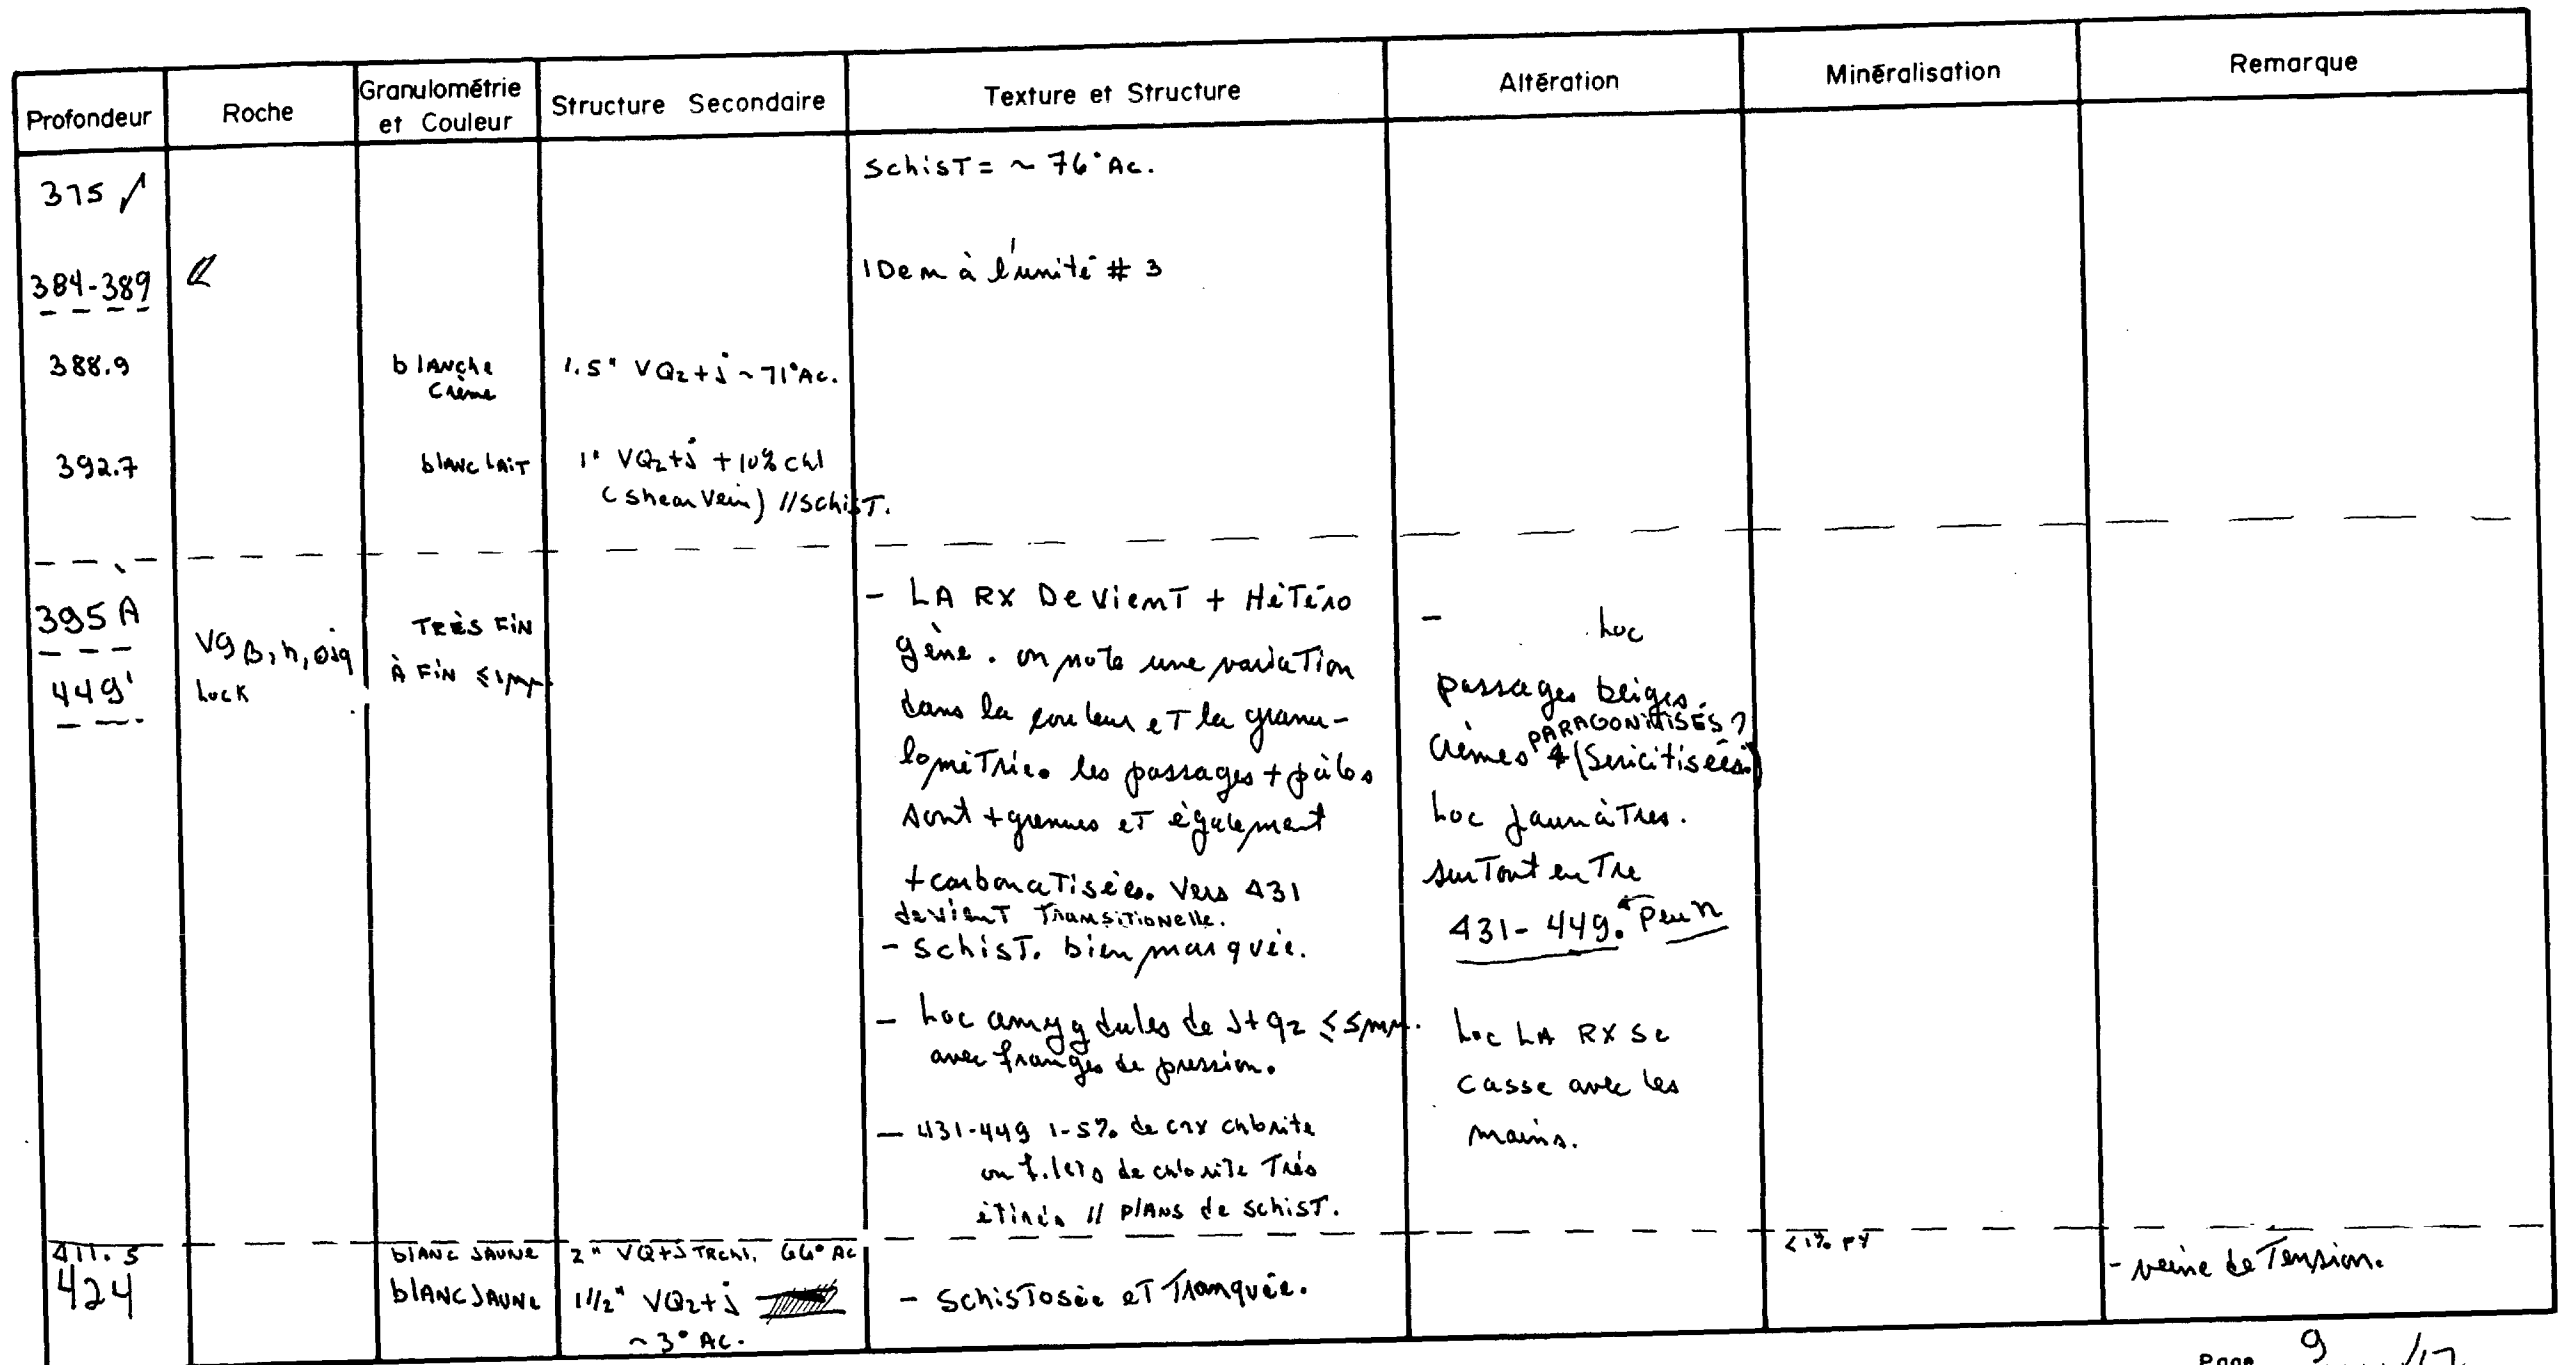 Profondeur
Roche
Granulométrie
et Couleur
Structure Secondaire
Texture et Structure
Altération
Minéralisation
Remarque
375
SchisT = ~ 76° Ac.
384-389
IDem à l'unité # 3
388.9
blanche
Crème
1.5" VQz+j ~71°Ac.
392.7
blanc lait
1" VQz+j +10% chl
(shear vein) //schisT.
395 À
449'
TRÈS FIN
À FIN ≤1mm
- LA RX DevienT + HéTéro
gène. on note une variaTion
dans la couleur eT la granu-
loméTrie. les passages + pâles
sont + grenues eT également
+ carbonaTisées. Vers 431
devienT TransiTionelle.
- schisT. bien marquée.
- Loc amygdules de j+qz ≤5mm.
avec franges de pression.
- 431-449 1-5% de crx chlorite
ou filets de chlorite Très
étirés // plans de schisT.
- Loc
passages beiges.
crèmes (Sericitisées)
PARAGONITISÉS?
Loc jaunâTres.
surTout enTre
431-449. Peu
Loc LA RX se
casse avec les
mains.
411.5
blanc JAUNE
2" VQ+j TRchl, 66° Ac
<1% PY
- veine de Tension.
424
blanc JAUNE
1 1/2" VQz+j
~3° Ac.
- SchisTosée eT Tronquée.
Page 9/17